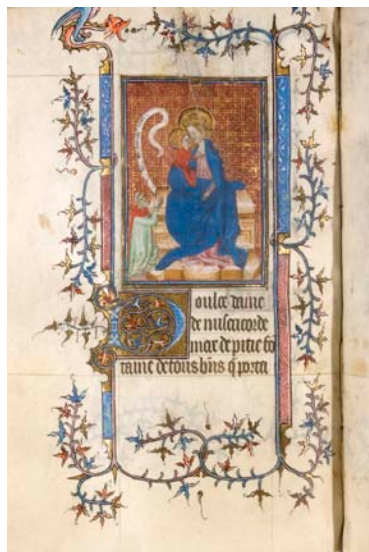 Doulce dame
de misericorde
mere de pitie fō
taine de tous b̄ns q̄ porta